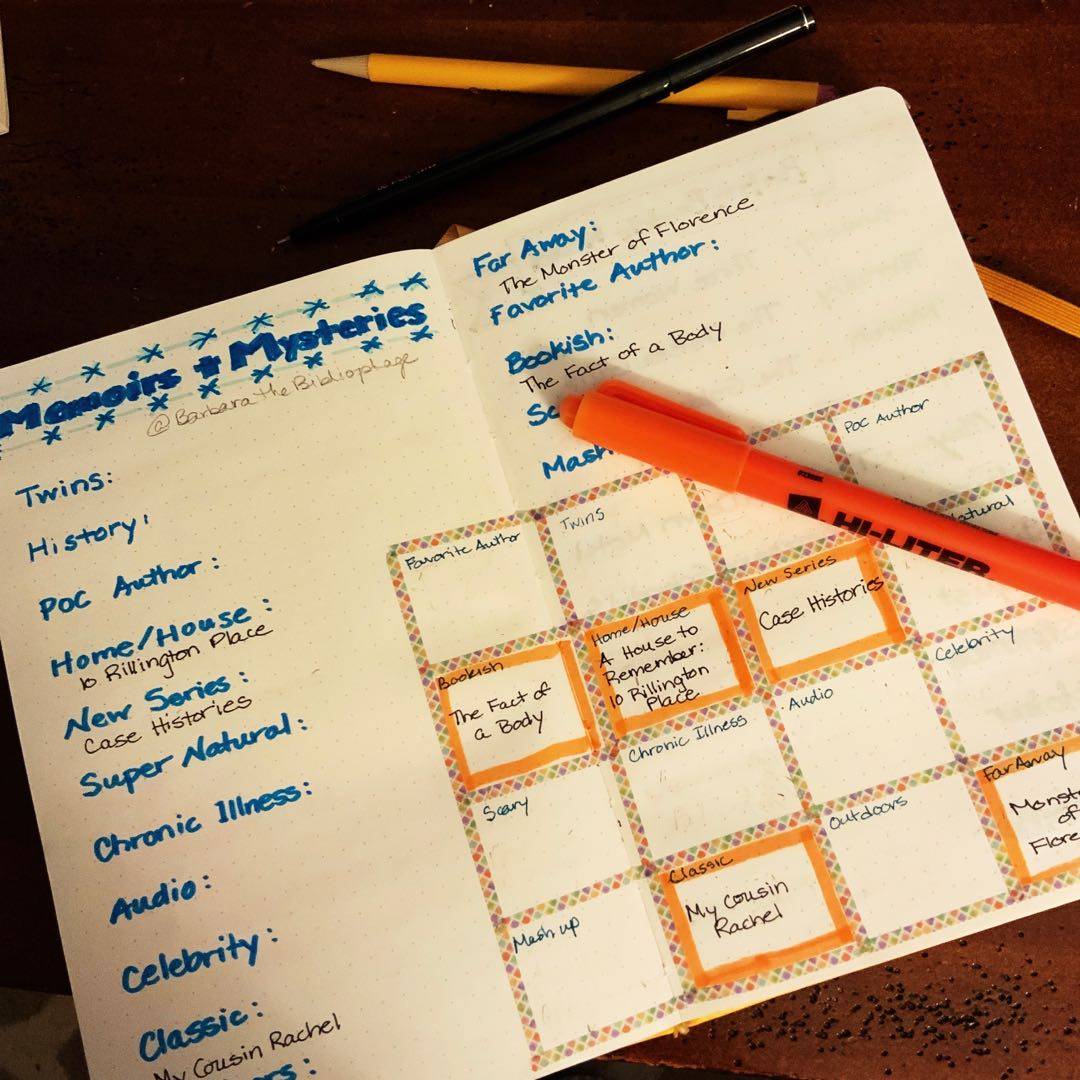 Memoirs + Mysteries
@BarbaratheBibliophage
Twins:
History:
POC Author:
Home/House:
10 Rillington Place
New Series:
Case Histories
Super Natural:
Chronic Illness:
Audio:
Celebrity:
Classic:
My Cousin Rachel
Far Away:
The Monster of Florence
Favorite Author:
Bookish:
The Fact of a Body
Favorite Author
Twins
POC Author
Bookish
The Fact of
a Body
Home/House
A House to
Remember:
10 Rillington
Place
New Series
Case Histories
Scary
Chronic Illness
Audio
Celebrity
Mash up
Classic
My Cousin
Rachel
Outdoors
Far Away
of
HI-LITER